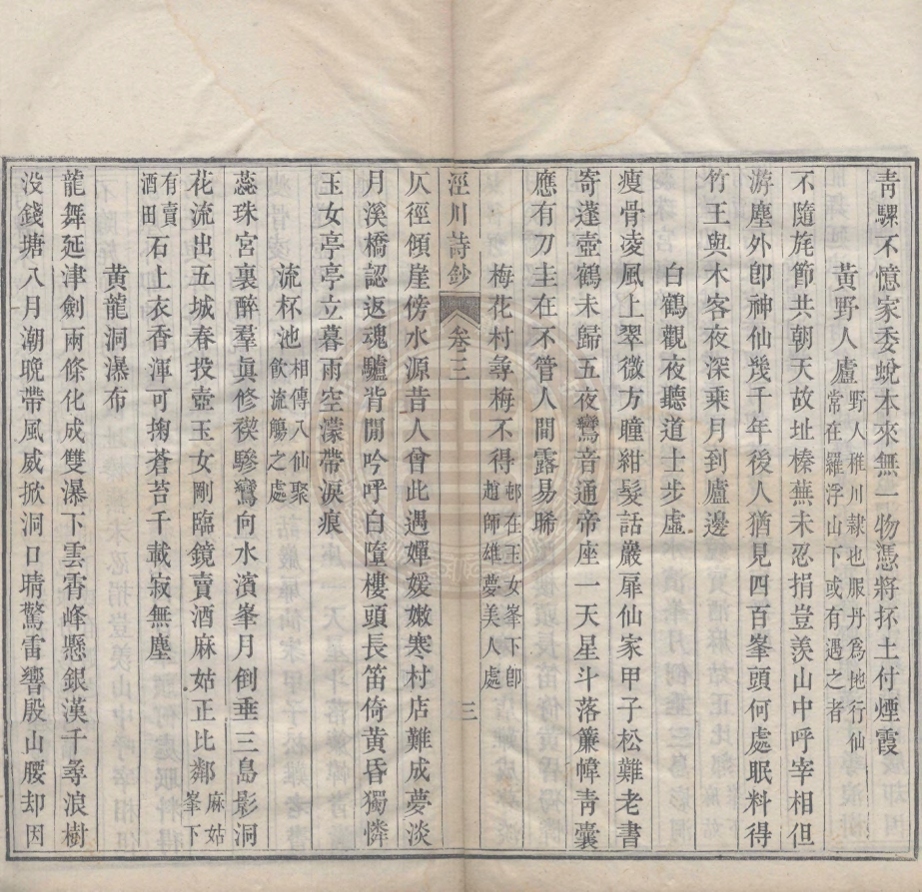 青騾不憶家委蛻本來無一物憑將抔土付煙霞
黃野人廬野人稚川隸也服丹爲地行仙常在羅浮山下或有遇之者
不隨旄節共朝天故址榛蕪未忍捐豈羨山中呼宰相但
游塵外卽神仙幾千年後人猶見四百峯頭何處眠料得
竹王與木客夜深乘月到廬邊
白鶴觀夜聽道士步虛
瘦骨凌風上翠微方瞳紺髮話巖扉仙家甲子松難老書
寄蓬壺鶴未歸五夜鸞音通帝座一天星斗落簾幃青囊
應有刀圭在不管人間露易晞
梅花村尋梅不得邨在玉女峯下卽趙師雄夢美人處
涇川詩鈔 卷三 三
仄徑傾崖傍水源昔人曾此遇嬋媛嫩寒村店難成夢淡
月溪橋認返魂驢背閒吟呼白墮樓頭長笛倚黃昏獨憐
玉女亭亭立暮雨空濛帶淚痕
流杯池相傳八仙聚飲流觴之處
蕊珠宮裏醉羣眞修禊驂鸞向水濱峯月倒垂三島影洞
花流出五城春投壺玉女剛臨鏡賣酒麻姑正比鄰麻姑峯下
有賣酒田石上衣香渾可掬蒼苔千載寂無塵
黃龍洞瀑布
龍舞延津劍兩條化成雙瀑下雲霄峰懸銀漢千尋浪樹
没錢塘八月潮晩帶風威掀洞口晴驚雷響殷山腰却因